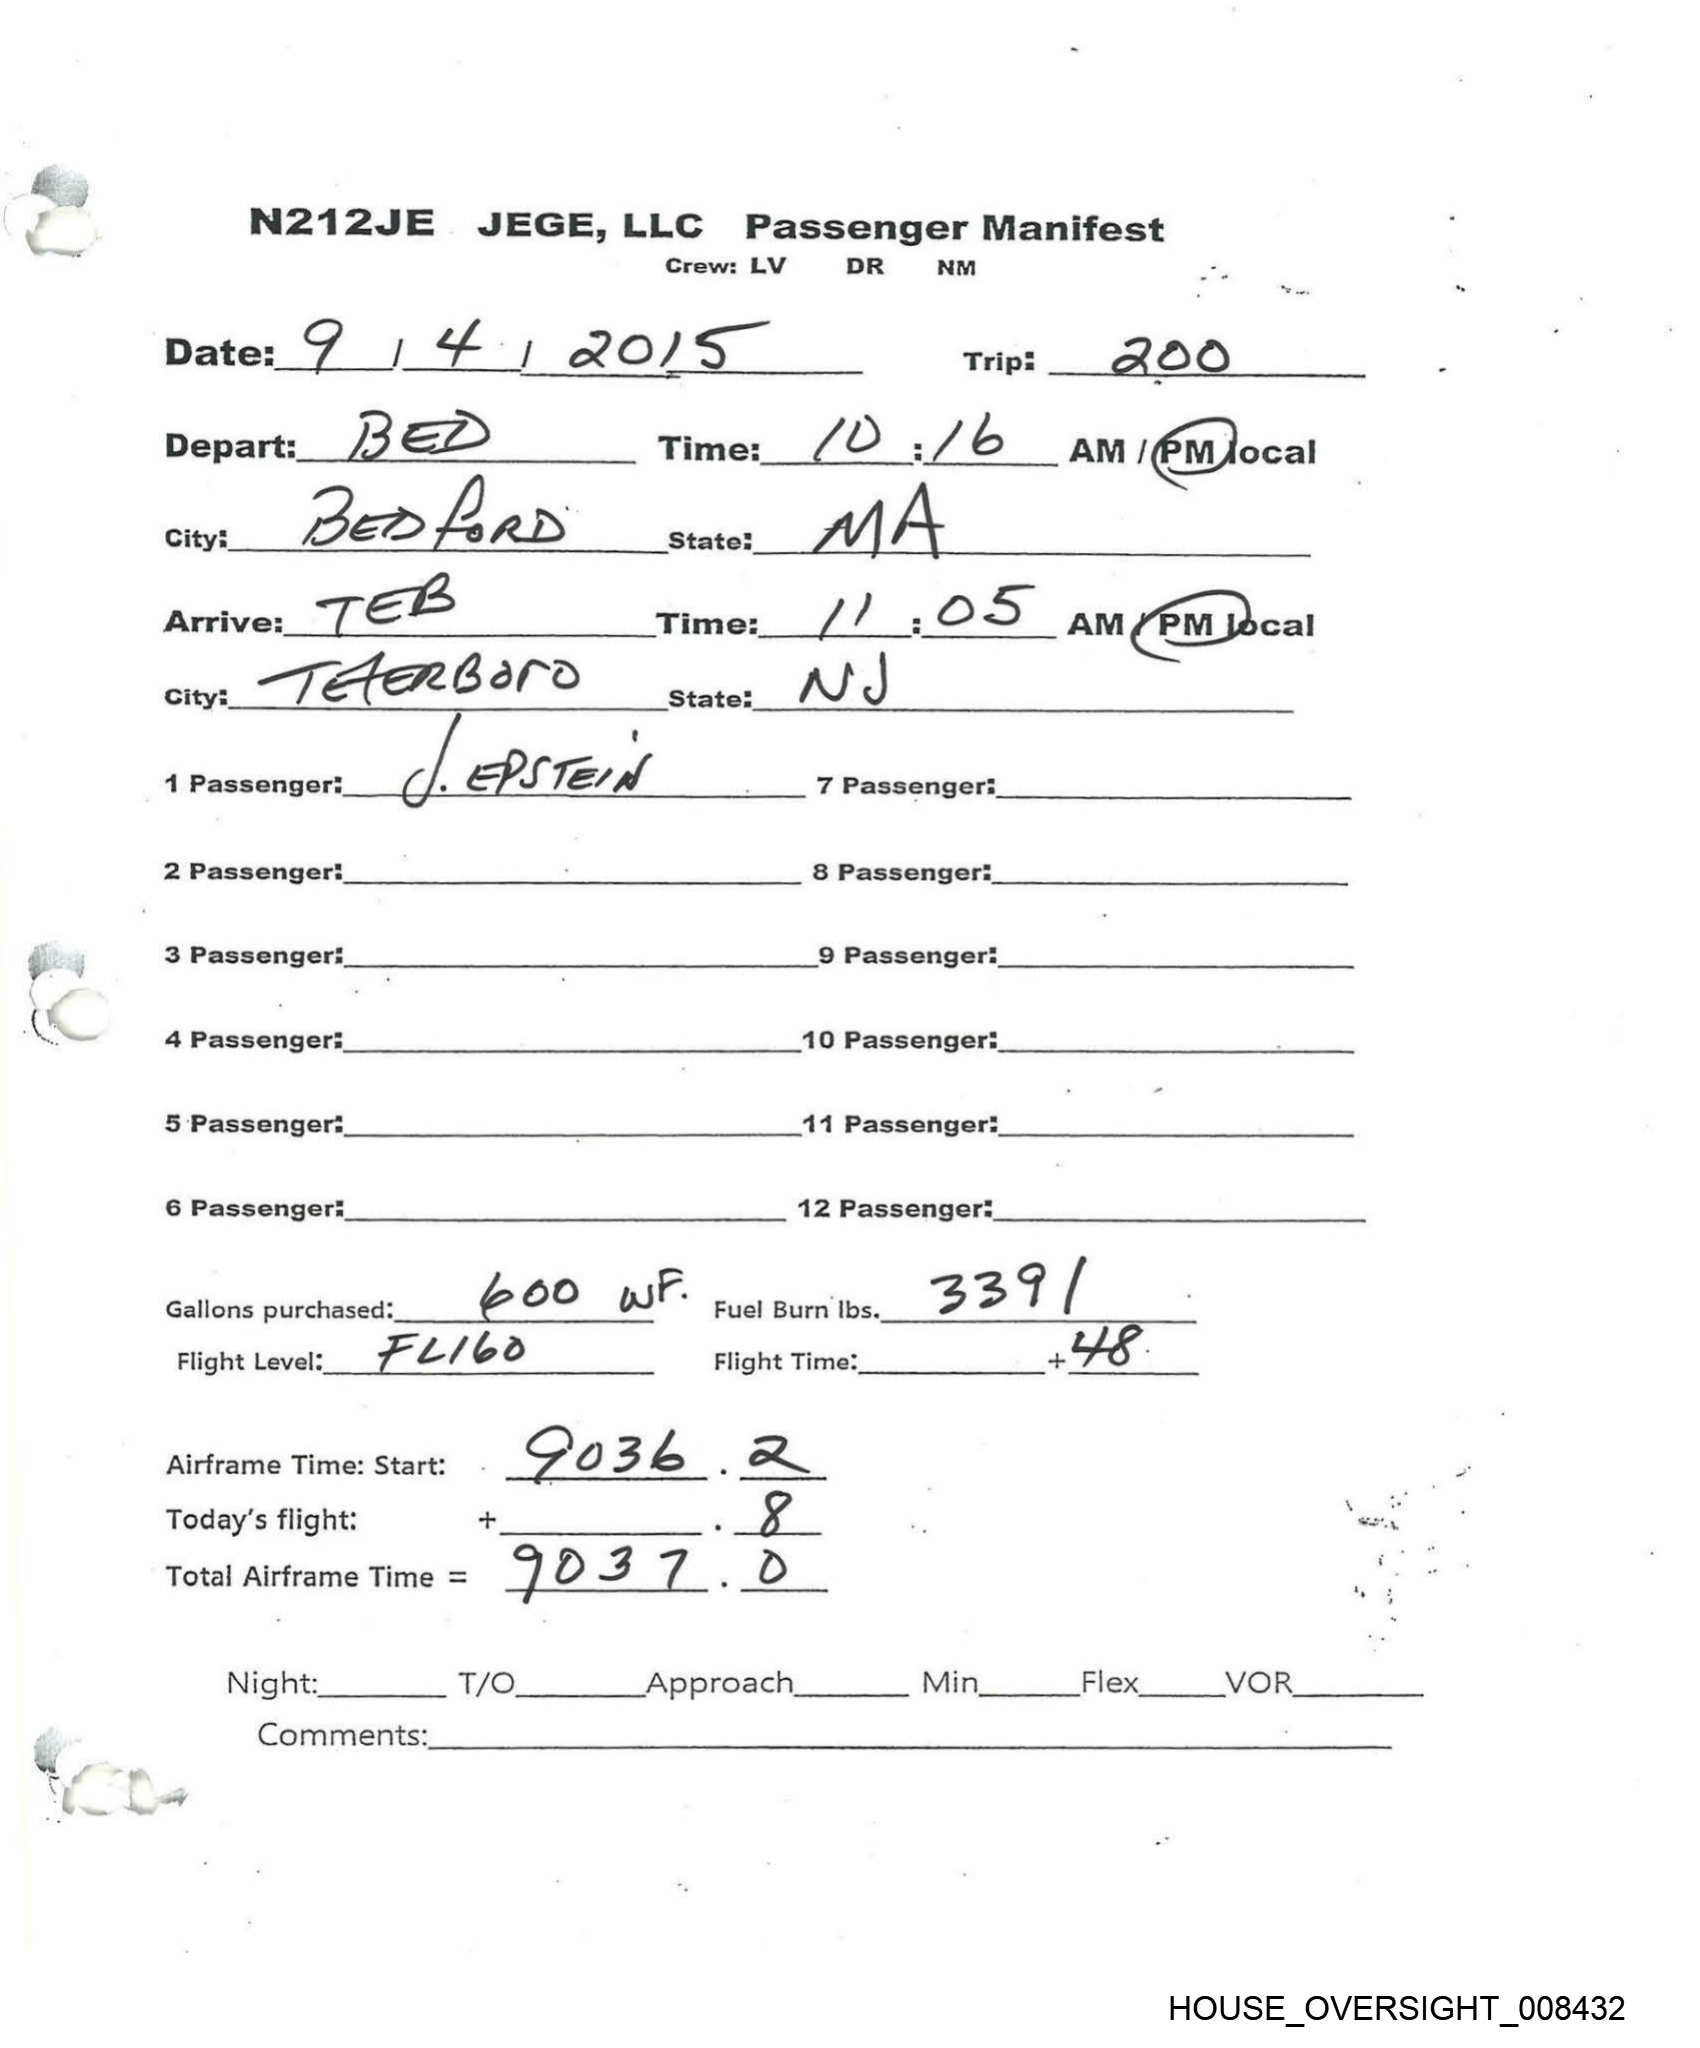 N212JE JEGE, LLC Passenger Manifest
Crew: LV DR NM
Date: 9 / 4 / 2015 Trip: 200
Depart: BED Time: 10 : 16 AM / PM local
City: BEDFORD State: MA
Arrive: TEB Time: 11 : 05 AM / PM local
City: TETERBORO State: NJ
1 Passenger: J. EPSTEIN 7 Passenger:
2 Passenger: 8 Passenger:
3 Passenger: 9 Passenger:
4 Passenger: 10 Passenger:
5 Passenger: 11 Passenger:
6 Passenger: 12 Passenger:
Gallons purchased: 600 WF. Fuel Burn lbs. 3391
Flight Level: FL160 Flight Time: + 48
Airframe Time: Start: 9036 . 2
Today's flight: + . 8
Total Airframe Time = 9037 . 0
Night: T/O Approach Min Flex VOR
Comments:
HOUSE_OVERSIGHT_008432